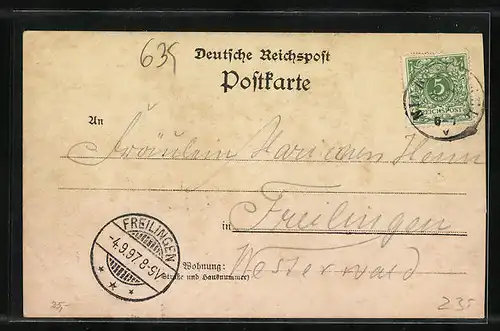 635
Deutsche Reichspost
Postkarte
5
REICHSPOST
An
Fräulein
in Freilingen
Westerwald
Wohnung:
(Straße und Hausnummer)
FREILINGEN
-4.9.97.8-9V
25,-
235